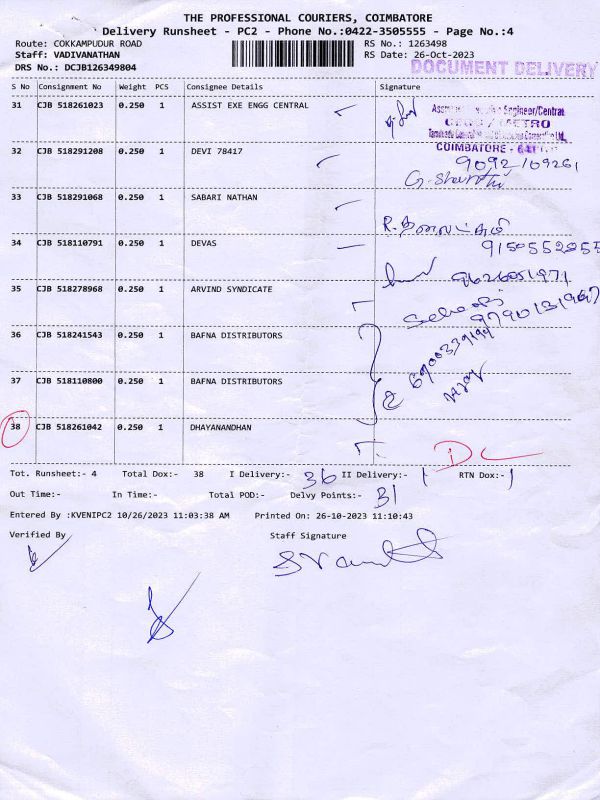 THE PROFESSIONAL COURIERS, COIMBATORE
Delivery Runsheet - PC2 - Phone No.:0422-3505555 - Page No.:4
Route: COKKAMPUDUR ROAD RS No.: 1263498
Staff: VADIVANATHAN RS Date: 26-Oct-2023
DRS No.: DCJB126349804 DOCUMENT DELIVERY
S No Consignment No Weight PCS Consignee Details Signature
31 CJB 518261023 0.250 1 ASSIST EXE ENGG CENTRAL
Engineer/Central
METRO
COIMBATORE
32 CJB 518291208 0.250 1 DEVI 78417
9092109261
33 CJB 518291068 0.250 1 SABARI NATHAN
34 CJB 518110791 0.250 1 DEVAS
35 CJB 518278968 0.250 1 ARVIND SYNDICATE
36 CJB 518241543 0.250 1 BAFNA DISTRIBUTORS
37 CJB 518110800 0.250 1 BAFNA DISTRIBUTORS
38 CJB 518261042 0.250 1 DHAYANANDHAN
DC
Tot. Runsheet:- 4 Total Dox:- 38 I Delivery:- 36 II Delivery:- 1 RTN Dox:- 1
Out Time:- In Time:- Total POD:- Delvy Points:- 31
Entered By :KVENIPC2 10/26/2023 11:03:38 AM Printed On: 26-10-2023 11:10:43
Verified By Staff Signature